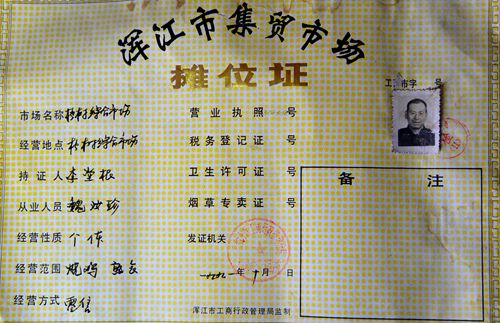 浑江市集贸市场
摊位证
工 市字 号
市场名称 综合市场
营业执照 号
经营地点 综合市场
税务登记证 号
持证人 李堂根
卫生许可证 号
备注
从业人员 魏淑珍
烟草专卖证 号
经营性质 个体
发证机关
经营范围 烧鸡 熟食
一九九一年十月 日
经营方式 零售
浑江市工商行政管理局监制